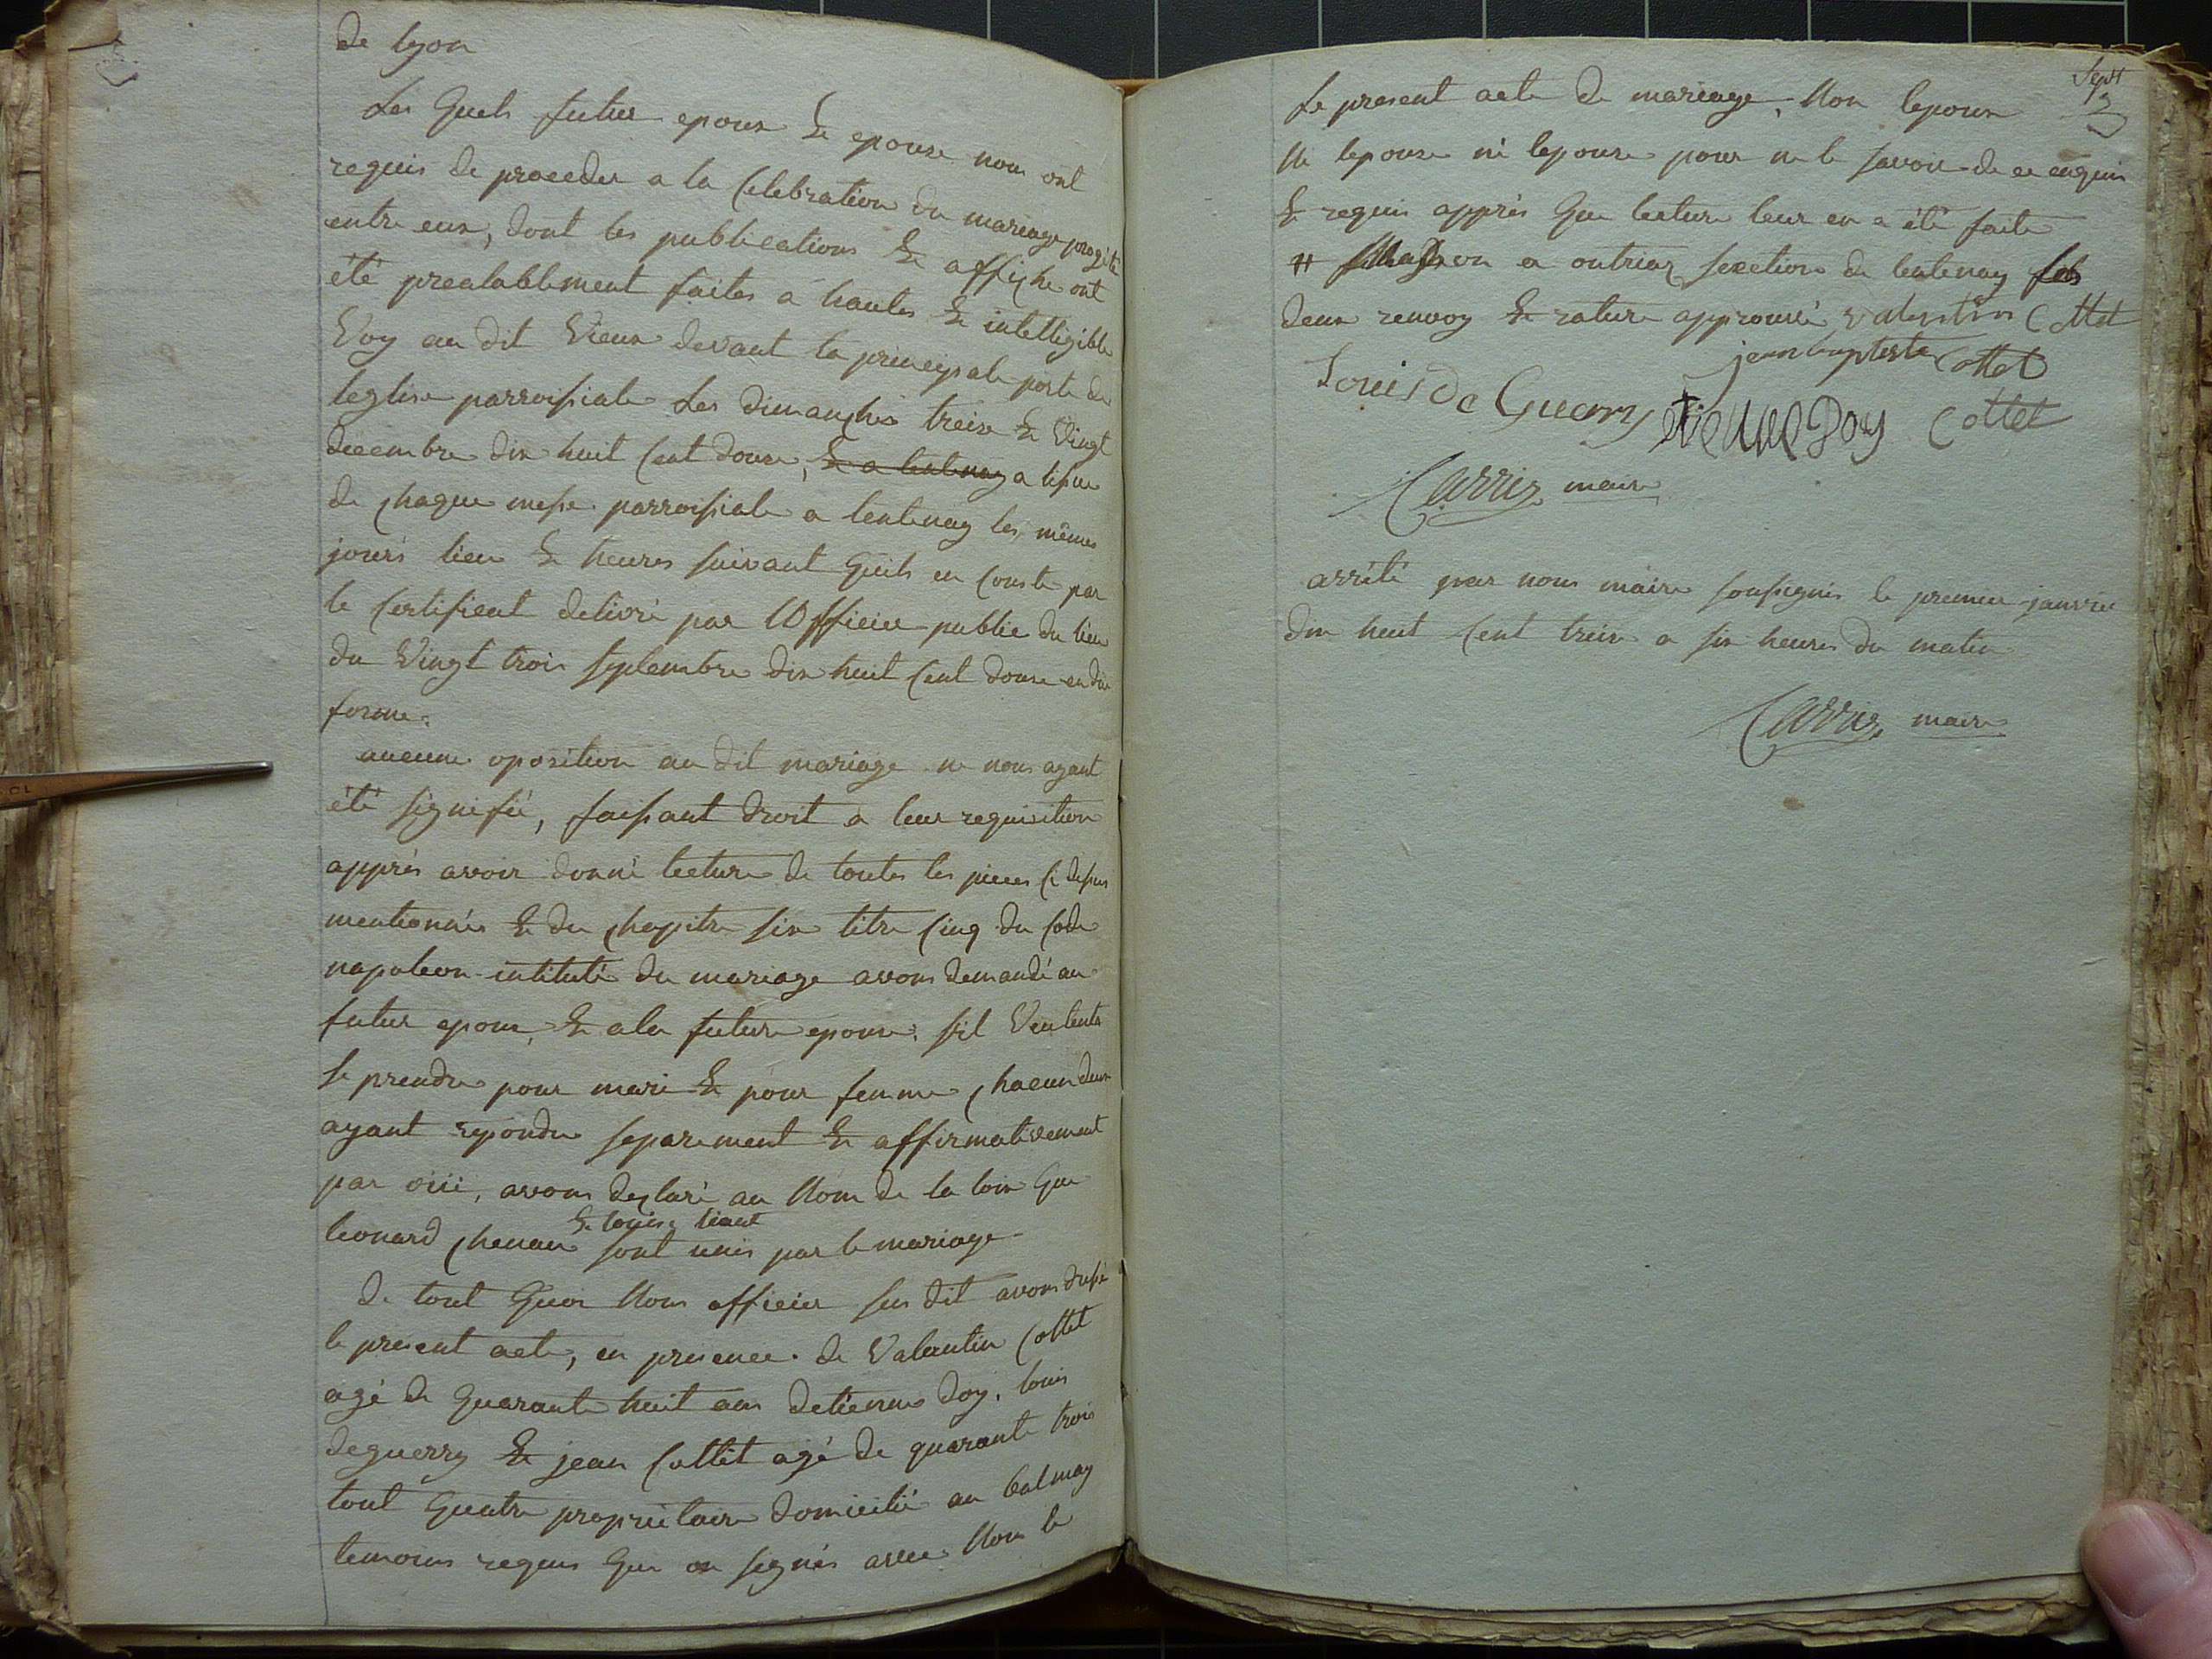 de lyon
Les quels futur epoux & epouse nous ont
requis de proceder a la Celebration du mariage progété
entre eux, dont les publications & affiche ont
été prealablement faites a hautes & intelligible
Voy au dit Vieux devant la principale porte de
leglise parroissiale les dimanches treise & Vingt
decembre dix huit Cent douse, & a lentenay a lissue
de chaque messe parroissiale a lentenay les mêmes
jours lieu & heures suivant quils en Conste par
le Certificat delivré par lOfficier public du lieu
du Vingt trois septembre dix huit Cent douse en due
forme.
aucune oposition au dit mariage ne nous ayant
été signifié, faissant droit a leur requisition
apprés avoir donné lecture de toutes les pieces Ci dessus
mentionnés & du chapitre six titre Cinq du Code
napoleon intitulé du mariage avons demandé au
futur epoux & a la future epouse sil Veulents
se prendre pour mari & pour femme chacun deux
ayant repondu separement & affirmativement
par oüi, avons declaré au Nom de la loix que
& louise
leonard chenau sont unis par le mariage
de tout quoi Nous officier sus dit avons dressé
le present acte, en presence de Valentin Cottet
agé de quarante huit ans detienne Doy, louis
deguerry & jean Cottet agé de quarante trois
tout quatre proprietaire domicilié au balmay
temoins requis qui on signés avec Nous le
Sept
le present acte de mariage, Non lepoux
Ne lepouse ni lepouse pour ne le savoir de ce enquis
& requis apprés que lecture leur en a été faite
a outriaz section de lentenay
deux renvoy & rature approuvé valentin Cottet
jean baptiste Cottet
Louis De Guerry etienne Doy Cottet
Carrier maire
arrété par nous maire soussignés le premier janvier
dix huit Cent treise a six heures du matin
Carrier maire